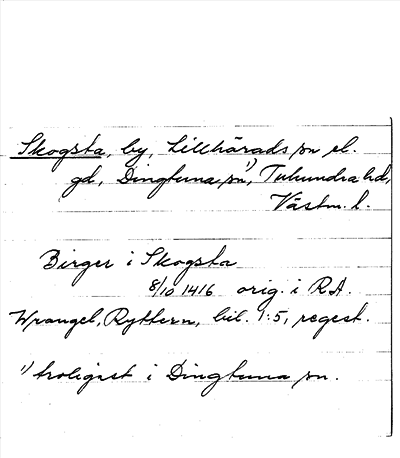 Skogsta, by, Lillhärads sn el.
gd, Dingtuna sn¹⁾, Tuhundra hd,
Västm. l.
Birger i Skogsta
8/10 1416 orig. i RA.
Wrangel, Ryttern, bil. 1:5, regest.
¹⁾ troligast i Dingtuna sn.